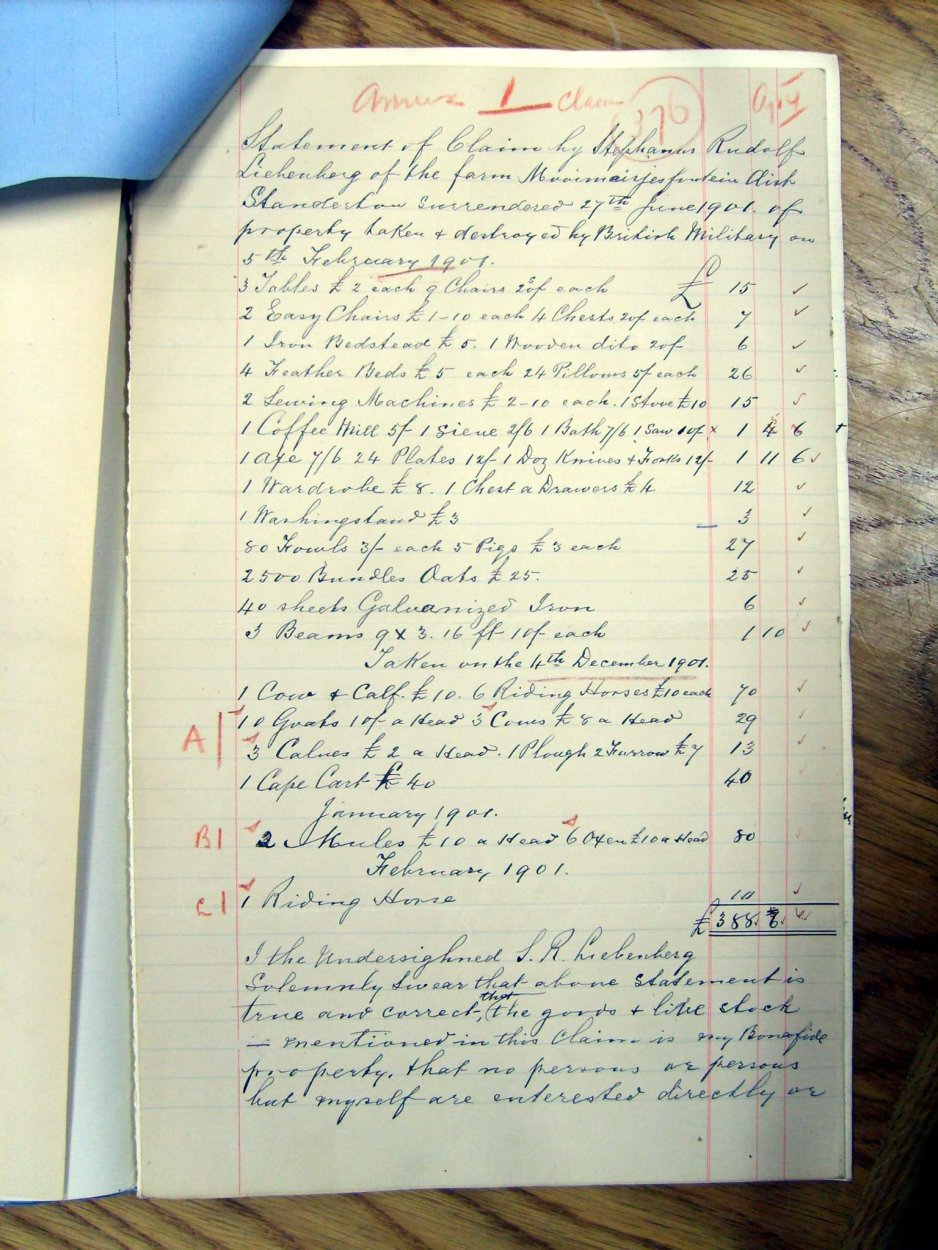 Annex 1 Claim 376
Statement of Claim by Stephanus Rudolf
Liebenberg of the farm Mooimeisjesfontein Dist
Standerton surrendered 27th June 1901. of
property taken & destroyed by British Military on
5th February 1901.
3 Tables £ 2 each 9 Chairs 20/ each £ 15 ✓
2 Easy Chairs £ 1-10 each 4 Chests 20/ each 7 ✓
1 Iron Bedstead £ 5. 1 Wooden dito 20/ 6 ✓
4 Feather Beds £ 5 each 24 Pillows 5/ each 26 ✓
2 Sewing Machines £ 2-10 each. 1 Stove £10 15 ✓
1 Coffee Mill 5/ 1 Sieve 2/6 1 Bath 7/6 1 Saw 10/ x 1 6
1 Axe 7/6 24 Plates 12/- 1 Doz Knives & Forks 12/- 1 11 6 ✓
1 Wardrobe £ 8. 1 Chest a Drawers £ 4 12 ✓
1 Washingstand £ 3 3 ✓
80 Fowls 3/- each 5 Pigs £ 3 each 27 ✓
2500 Bundles Oats £ 25. 25 ✓
40 sheets Galvanized Iron 6 ✓
3 Beams 9 x 3. 16 ft 10/ each 1 10 ✓
Taken on the 4th December 1901.
1 Cow & Calf. £ 10. 6 Riding Horses £10 each 70 ✓
10 Goats 10/ a Head 3 Cows £ 8 a Head 29 ✓
A 3 Calves £ 2 a Head. 1 Plough 2 Furrow £ 7 13 ✓
1 Cape Cart £ 40 40 ✓
January 1901.
B 2 Mules £ 10 a Head 6 Oxen £10 a Head 80
February 1901.
C 1 Riding Horse 10 ✓
£ 388
I the Undersighned S. R. Liebenberg
Solemnly Swear that above Statement is
true and correct, that the goods & live stock
— mentioned in this Claim is my Bonafide
property. that no persons or persons
but myself are enterested directly or